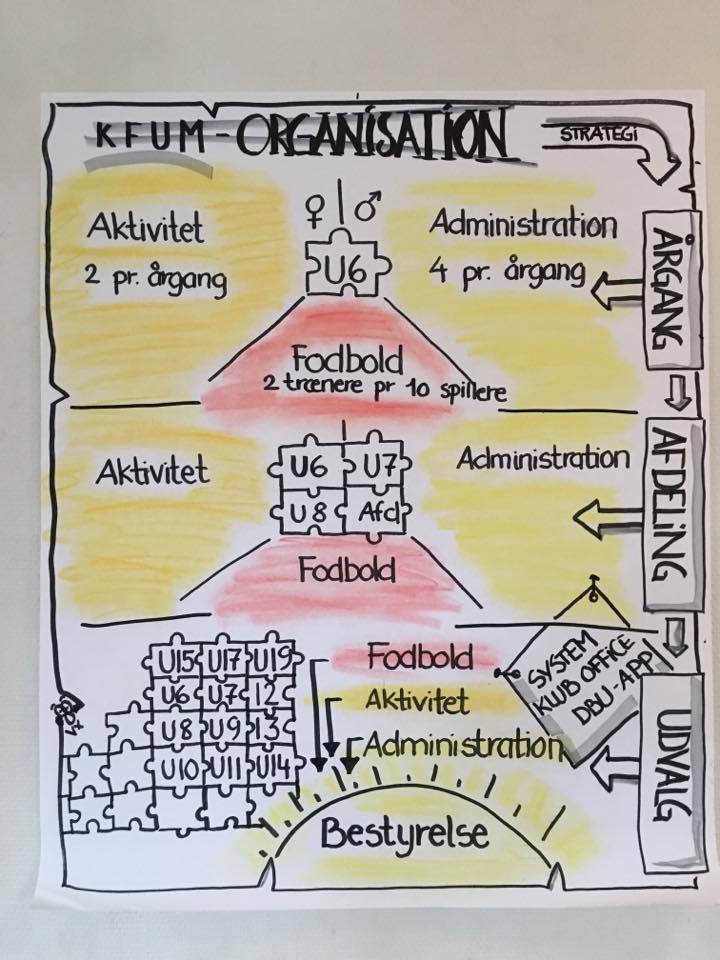 KFUM-ORGANISATION
STRATEGI
♀ | ♂
Aktivitet
2 pr. årgang
U6
Administration
4 pr. årgang
ÅRGANG
Fodbold
2 trænere pr 10 spillere
Aktivitet
U6 U7
U8 Afd
Administration
AFDELING
Fodbold
U15 U17 U19
U6 U7 12
U8 U9 13
U10 U11 U14
Fodbold
Aktivitet
Administration
SYSTEM
KLUB OFFICE
DBU-APP
UDVALG
Bestyrelse